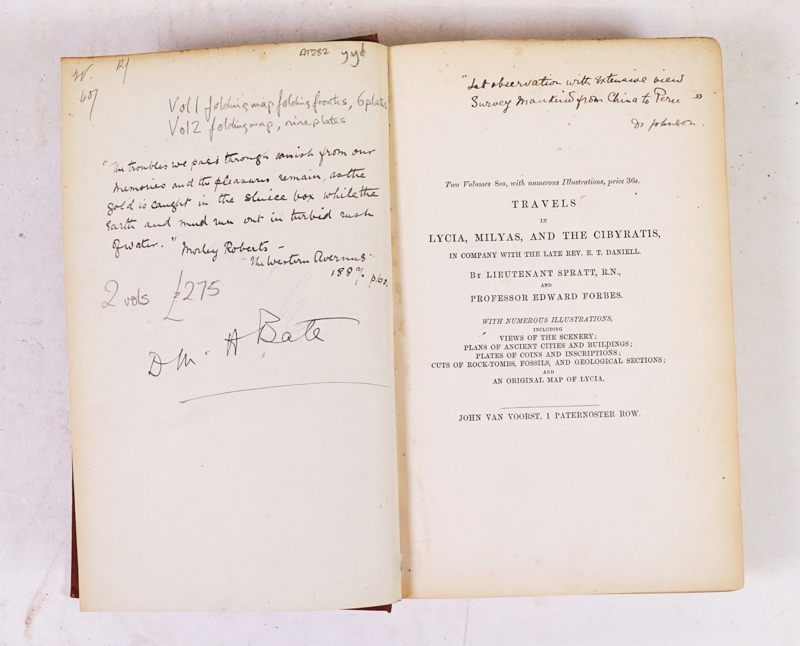 A1282 yyd
R/
Vol 1 folding map folding frontis, 6 plates
Vol 2 folding map, nine plates
"The troubles we pass through vanish from our
memories and the pleasures remain, as the
gold is caught in the sluice box while the
earth and mud run out in turbid rush
of water." Morley Roberts –
"The Western Avernus"
1887. p60.
2 vols £275
D M A Bate
"Let observation with extensive view
Survey Mankind from China to Peru"
Dr Johnson.
Two Volumes 8vo, with numerous Illustrations, price 36s.
TRAVELS
IN
LYCIA, MILYAS, AND THE CIBYRATIS,
IN COMPANY WITH THE LATE REV. E. T. DANIELL.
BY LIEUTENANT SPRATT, R.N.,
AND
PROFESSOR EDWARD FORBES.
WITH NUMEROUS ILLUSTRATIONS,
INCLUDING
VIEWS OF THE SCENERY;
PLANS OF ANCIENT CITIES AND BUILDINGS;
PLATES OF COINS AND INSCRIPTIONS;
CUTS OF ROCK-TOMBS, FOSSILS, AND GEOLOGICAL SECTIONS;
AND
AN ORIGINAL MAP OF LYCIA.
JOHN VAN VOORST, 1 PATERNOSTER ROW.